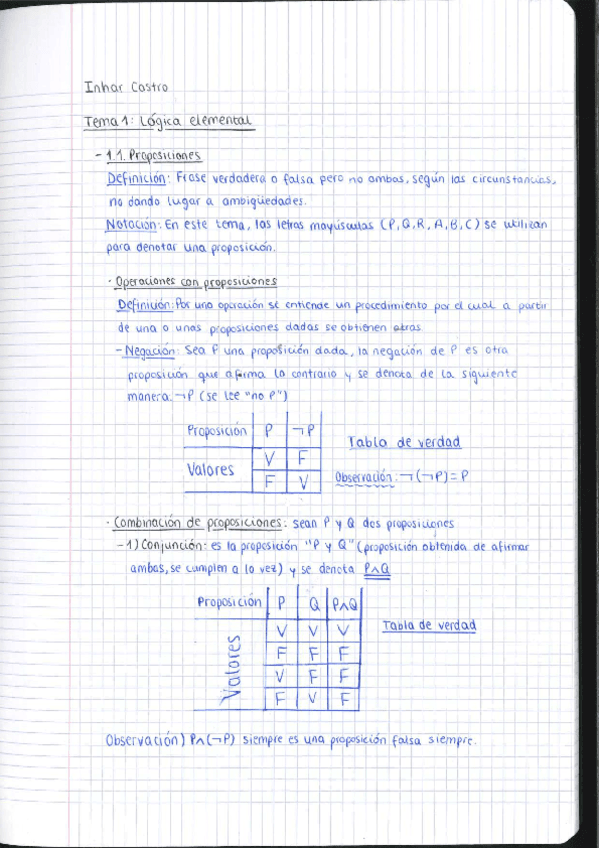 Inhar Castro
Tema 1: Lógica elemental
- 1.1. Proposiciones
Definición: Frase verdadera o falsa pero no ambas, según las circunstancias,
no dando lugar a ambigüedades.
Notación: En este tema, las letras mayúsculas (P, Q, R, A, B, C) se utilizan
para denotar una proposición.
· Operaciones con proposiciones
Definición: Por una operación se entiende un procedimiento por el cual a partir
de una o unas proposiciones dadas se obtienen otras
- Negación: Sea P una proposición dada, la negación de P es otra
proposición que afirma lo contrario y se denota de la siguiente
manera: ¬P (se lee "no P")
Proposición P ¬P
Valores V F
F V
Tabla de verdad
Observación: ¬(¬P)=P
· Combinación de proposiciones: sean P y Q dos proposiciones
- 1) Conjunción: es la proposición "P y Q" (proposición obtenida de afirmar
ambas, se cumplen a la vez) y se denota P∧Q
Proposición P Q P∧Q
Valores V V V
F F F
V F F
F V F
Tabla de verdad
Observación) P∧(¬P) siempre es una proposición falsa siempre.